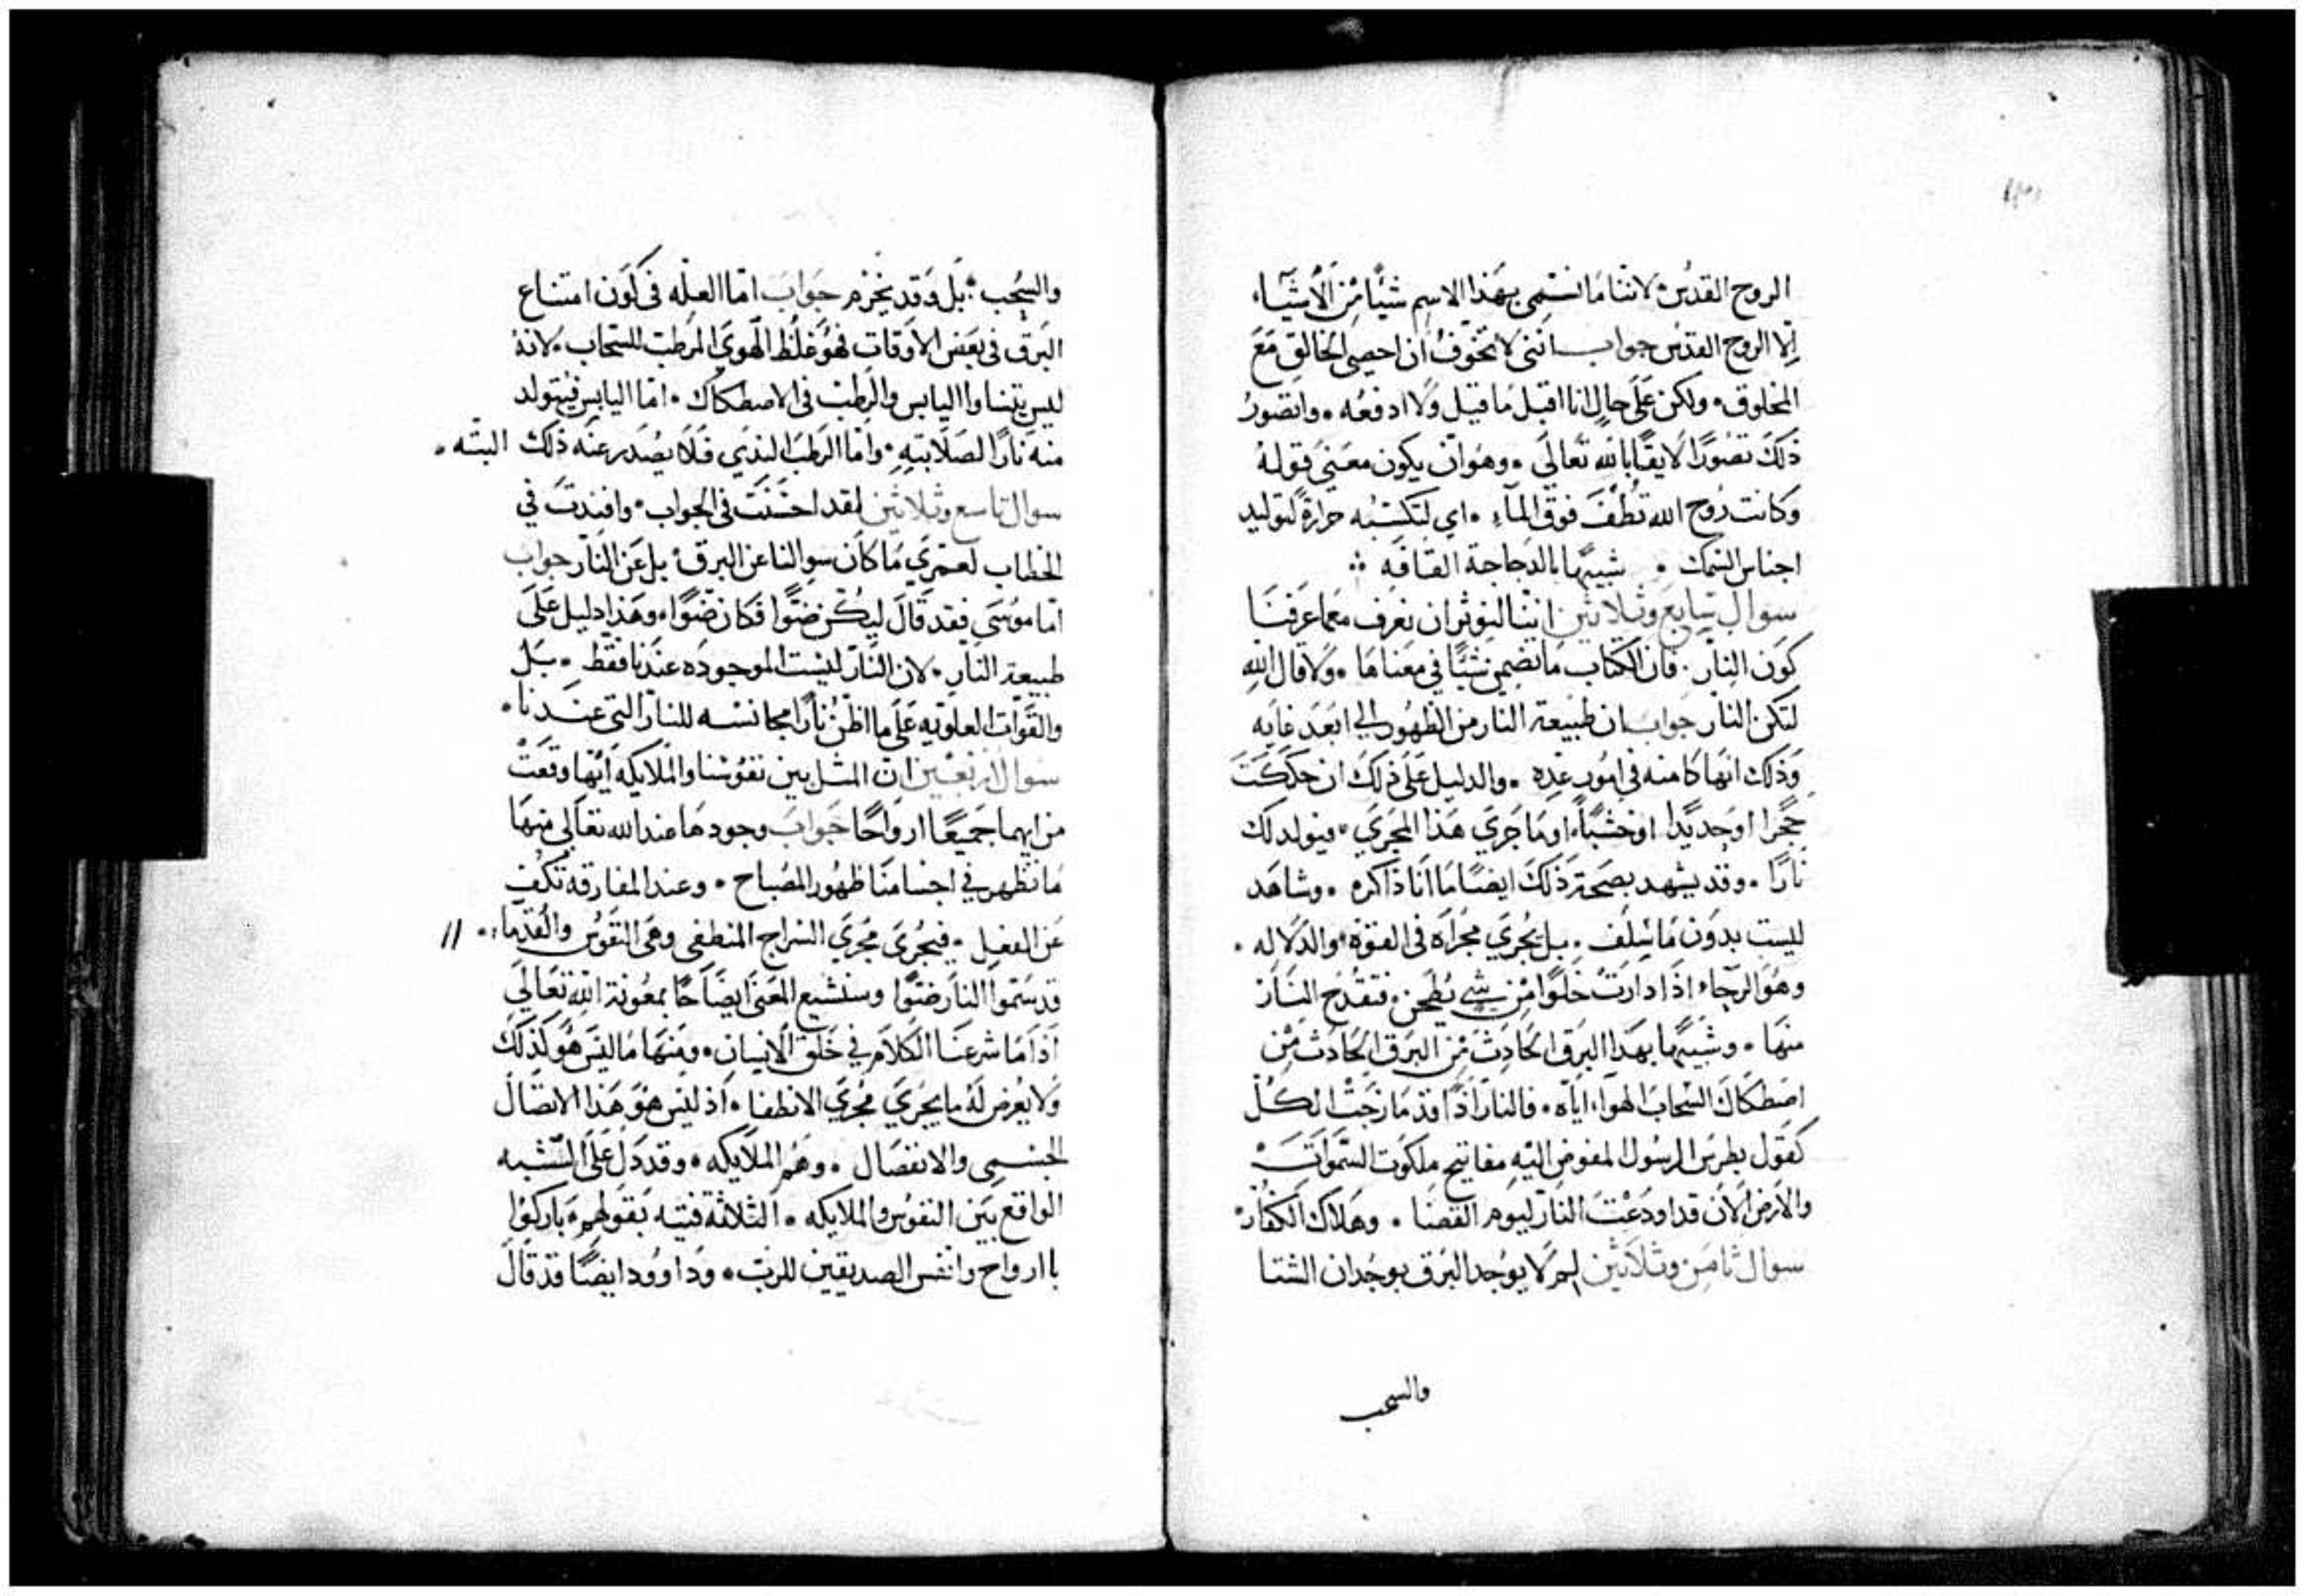 الروح القدس لاننا ما نسمى بهذا الاسم شيًا من الأشيآء
إلا الروح القدس جواب انني لا تخوف أن احصى الخالق مع
المخلوق ولكن على حالٍ انا اقبل ما قيل ولا ادفعه واتصور
ذلك تصورًا لايقًا بالله تعالى وهو ان يكون معنى قوله
وكانت روح الله تطف فوق المآء اي لتكسبه حرارة لتوليد
اجناس السمك شبيهًا بالدجاجة القافه
سوال سابع وثلاثين اننا لنوثر ان نعرف معما عرفنا
كون النار فان الكتاب ما تضمن شيًا في معناها ولا قال الله
لتكن النار جواب ان طبيعة النار من الظهور الي ابعد غايه
وذلك انها كامنه في امور عده والدليل على ذلك ان حككت
حجرًا او حديدًا او خشبًا او ما جرى هذا المجرى فيولد لك
نارًا وقد يشهد بصحة ذلك ايضًا ما أنا ذاكره وشاهد
ليست بدون ما سلف بل يجري مجراه في القوة والدلاله
وهو الرجاء اذا دارت خلوًا من شي يطحن فتقدح النار
منها وشبيهًا بهذا البرق الحادث من البرق الحادث من
اصطكاك السحاب الهواء اياه فالنار اذًا قد مازجت الكل
كقول بطرس الرسول المفوض اليه مفاتيح ملكوت السموات
والأرض الأن قد اودعت النار ليوم القضا وهلاك الكفار
سوال ثامن وثلاثين لم لا يوجد البرق بوجدان الشتا
والسحب
والسحب بل وقد يخرم جواب اما العله في كون امتناع
البرق في بعض الاوقات فهو غلظ الهوى المرطب للسحاب لانه
ليس يتساوا اليابس والرطب في الاصطكاك اما اليابس فيتولد
منه نارًا لصلابتهِ واما الرطب الندي فلا يصدر عنه ذلك البته
سوال تاسع وثلاثين لقد احسنت في الجواب وافندت في
الخطاب لعمري ما كان سوالنا عن البرق بل عن النار جواب
اما موسى فقد قال ليكن ضوًا فكان ضوًا وهذا دليل على
طبيعة النار لان النار ليست الموجوده عندنا فقط بل
والقوات العلويه على ما اظن نارًا مجانسه للنار التي عندنا
سوال اربعين ان المثل بين نفوسنا والملايكه أيها وقعت
من ايهما جميعًا ارواحًا جواب وجودها عند الله تعالى منها
ما تظهر في اجسامنا ظهور المصباح وعند المفارقة تكف
عن الفعل فيجرى مجرى السراج المنطفي وهي النفوس والقدماء
قد سموا النار ضوًا وسنشبع المعنى ايضاحًا بمعونة الله تعالى
اذا ما شرعنا الكلام في خلق الانسان ومنها ما ليس هو كذلك
ولا يعرض له ما يجري مجرى الانطفا اذ ليس هو هذا الاتصال
الجسمي والانفصال وهم الملايكه وقد دل على التشبه
الواقع بين النفوس والملايكه الثلاثة فتيه بقولهم باركوا
يا ارواح وانفس الصديقين للرب وداوود ايضًا قد قال